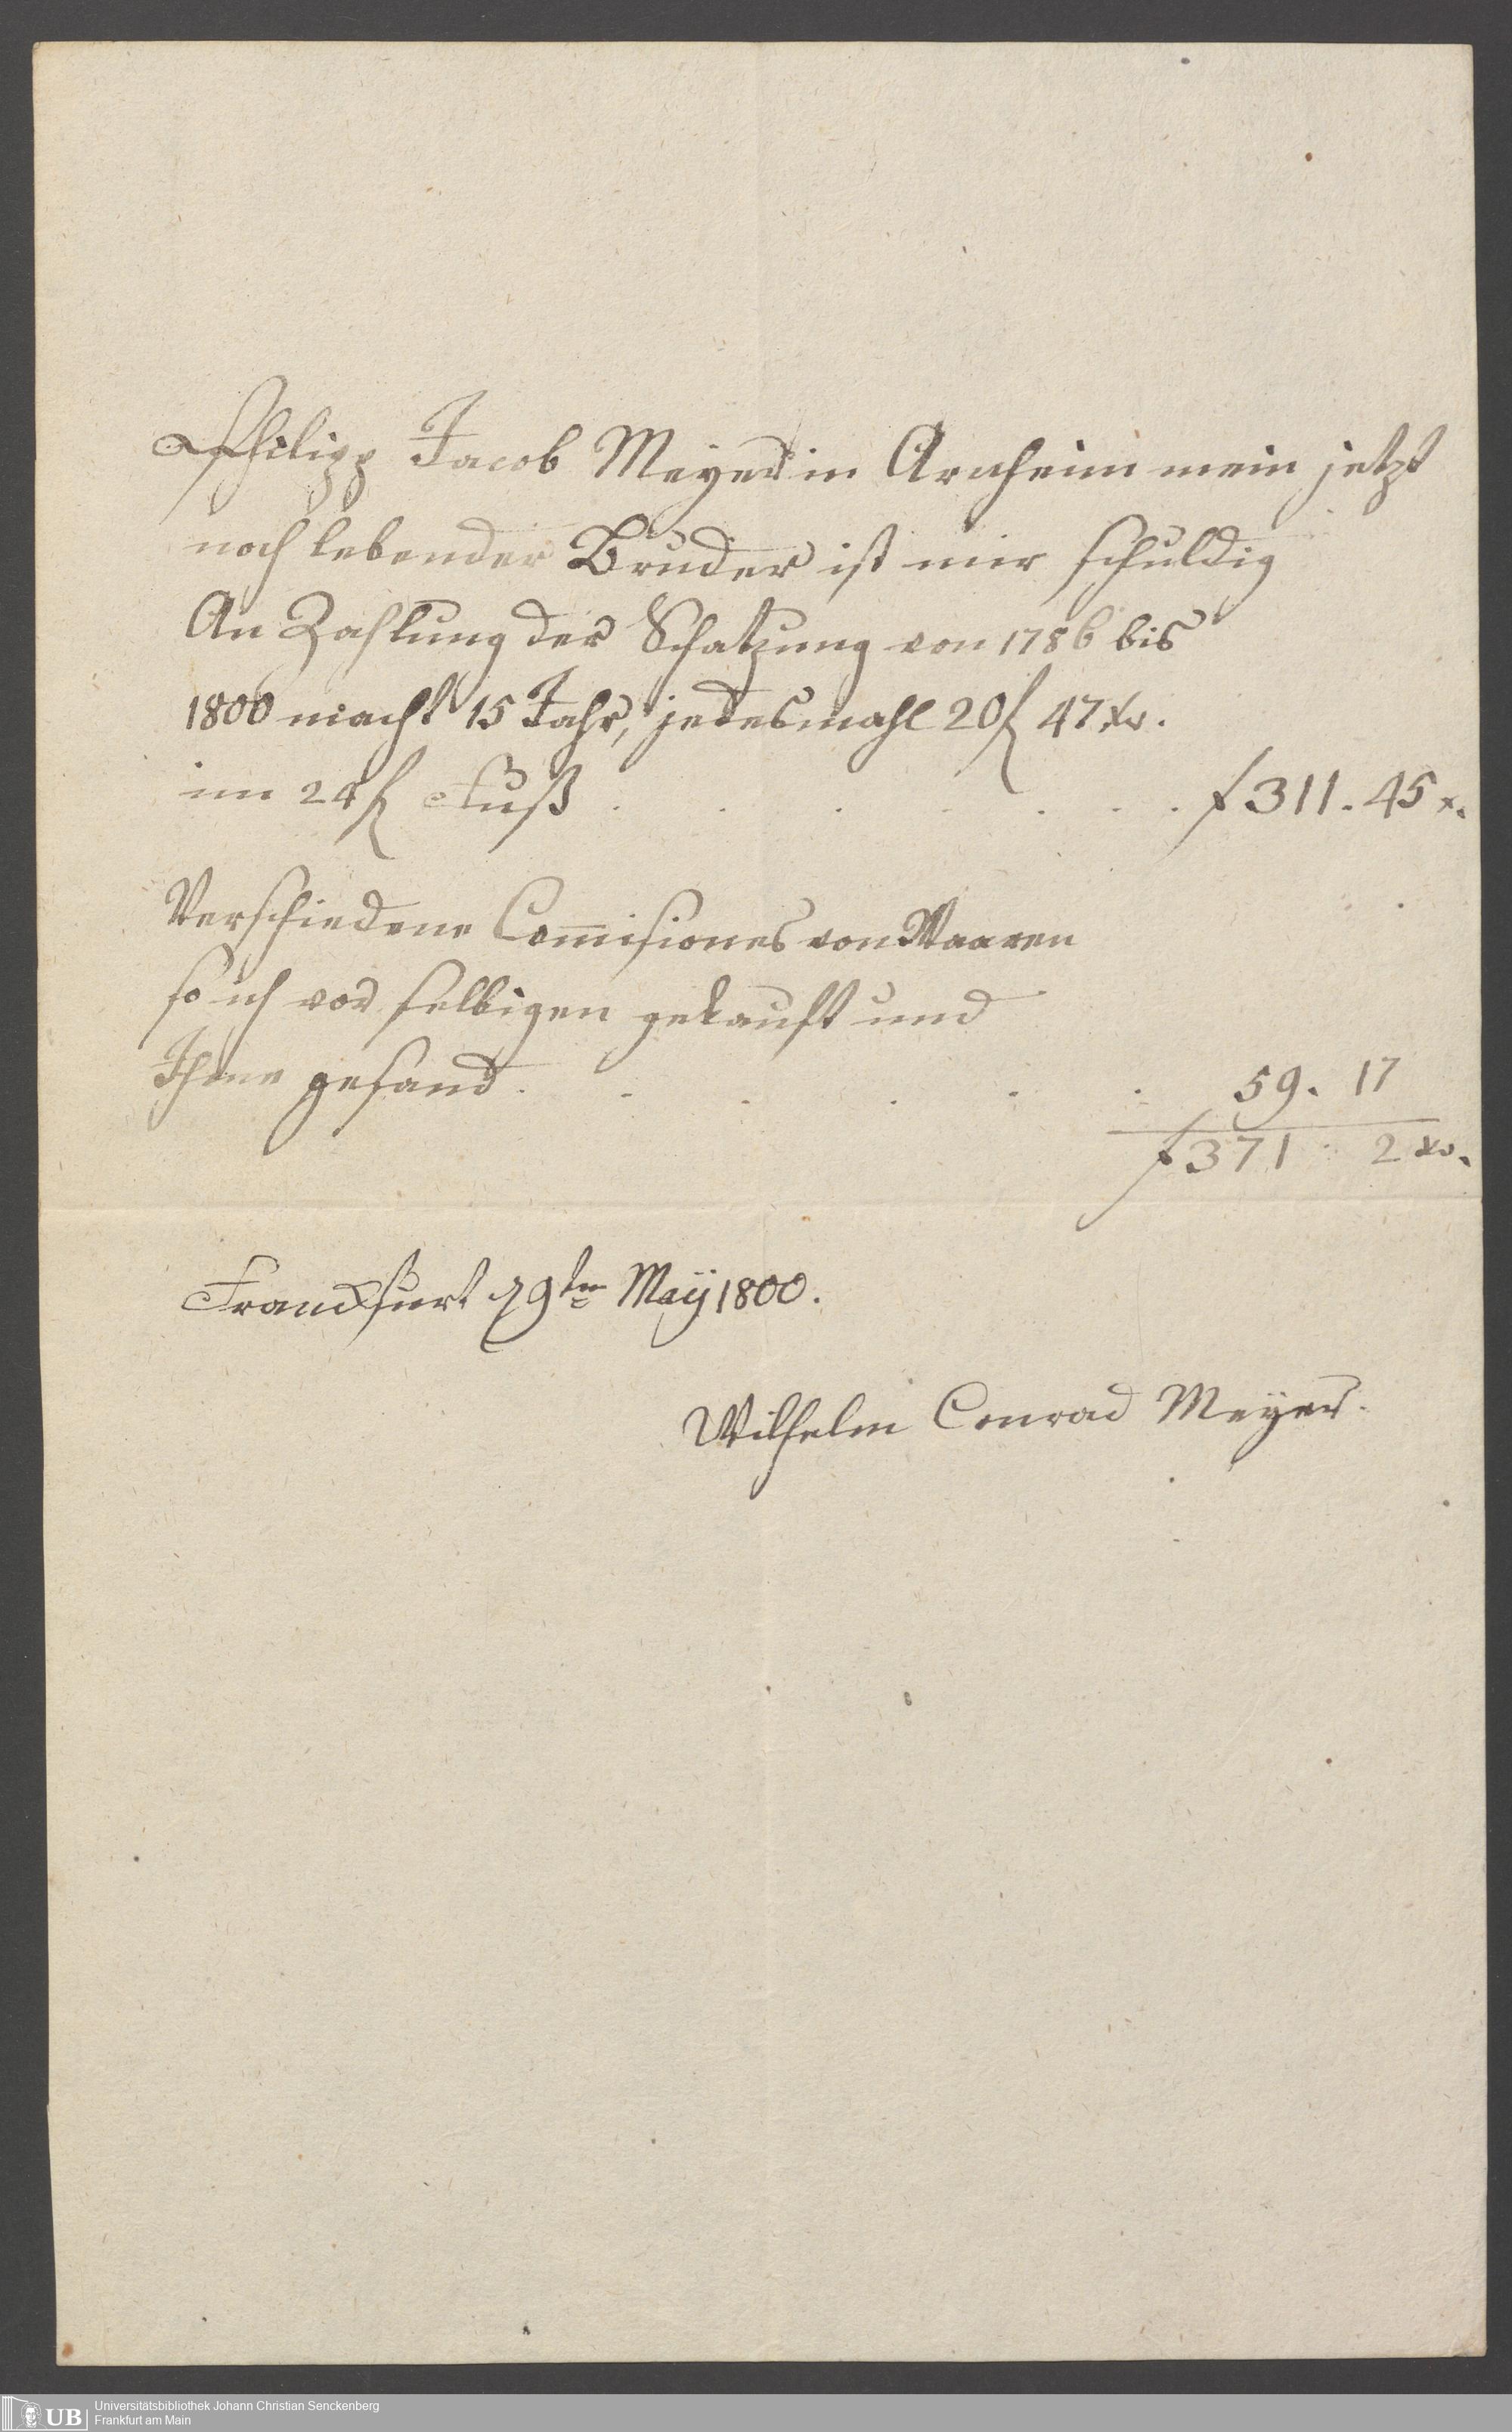 Philipp Jacob Meyer in Arnheim mein jetzt
noch lebender Bruder ist mir schuldig
An Zahlung der Schatzung von 1786 bis
1800 macht 15 Jahr, jedesmahl 20f 47 xr.
im 24f Fuß . . . . . . . f 311. 45 x.
Verschiedene Com̅isiones von Waaren
so ich vor selbigen gekauft und
Ihme gesand . . . . . . 59. 17
f 371 . 2 xr.
Franckfurt 29ten Maÿ 1800.
Wilhelm Conrad Meyer.
UB
Universitätsbibliothek Johann Christian Senckenberg
Frankfurt am Main